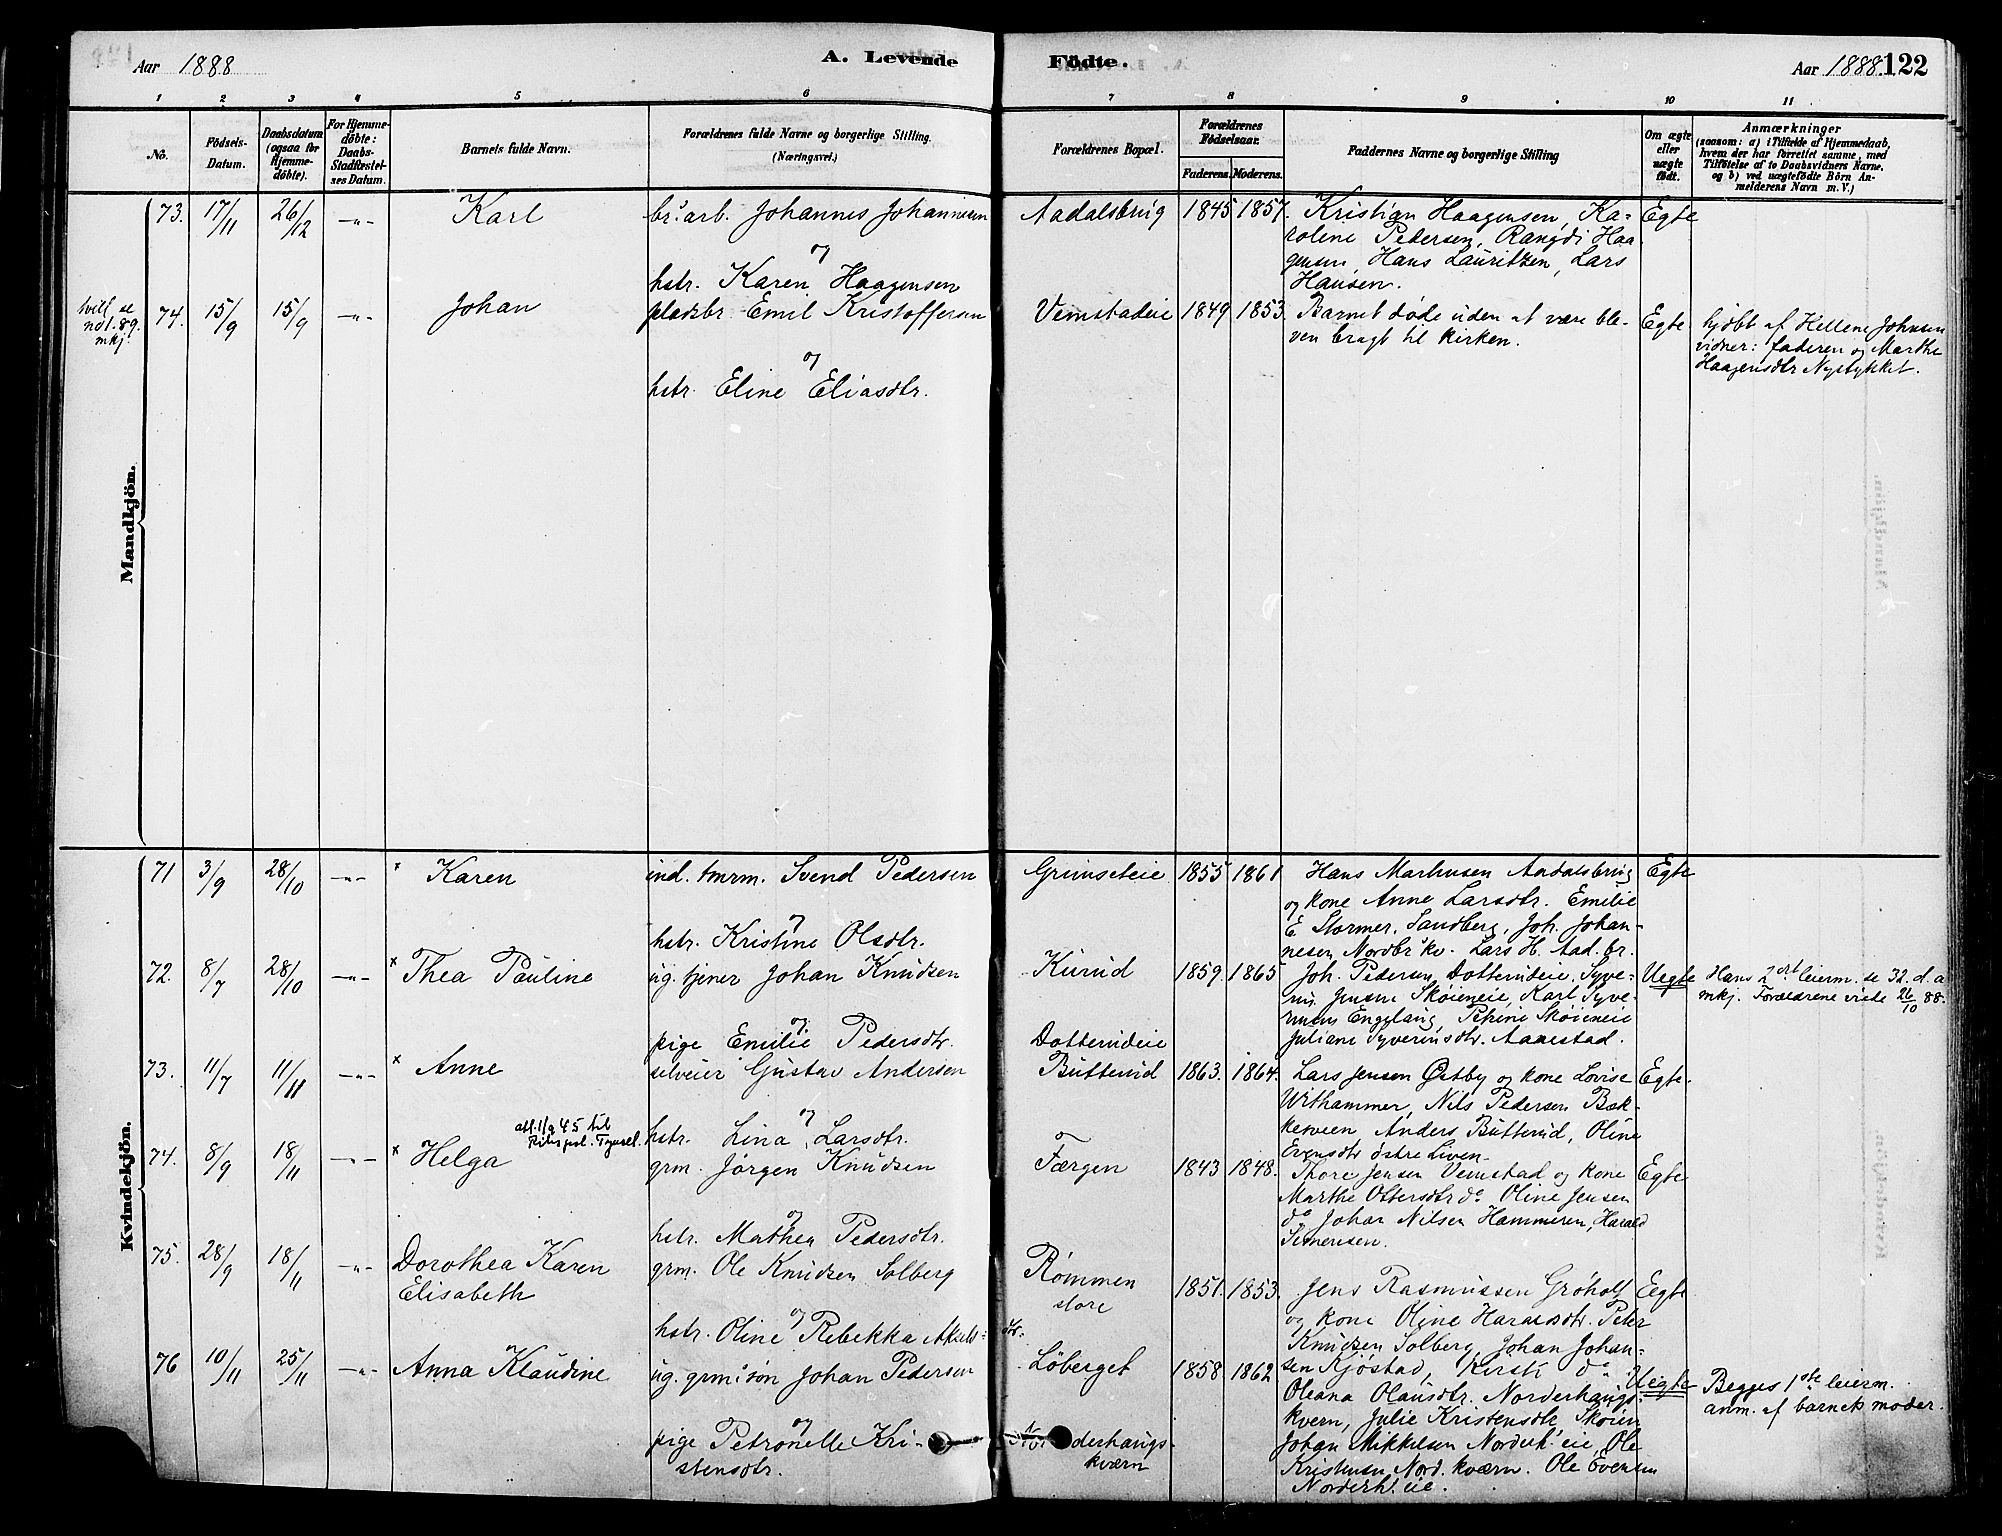 Aar 1888
A. Levende
Födte.
Aar 1888. 122
1 2 3 4 5 6 7 8 9 10 11
No.
Födsels-
Datum.
Daabsdatum
(ogsaa for
Hjemme-
döbte).
For Hjemme-
döbte:
Daabs-
Stadfæstel-
ses Datum.
Barnets fulde Navn.
Forældrenes fulde Navne og borgerlige Stilling.
(Næringsvei.)
Forældrenes Bopæl.
Forældrenes
Födselsaar.
Faderens. Moderens.
Faddernes Navne og borgerlige Stilling
Om ægte
eller
uægte
født.
Anmærkninger
(saasom: a) i Tilfælde af Hjemmedaab,
hvem der har forrettet samme, med
Tilföielse af to Daabsvidners Navne,
og b) ved uægtefödte Börn An-
melderens Navn m. V.)
Mandkjön.
73. 17/11 26/12 -"- Karl
br.arb. Johannes Johannesen
og
hstr. Karen Haagensen
Aadalsbrug 1845 1857.
Kristian Haagensen, Ka-
rolene Pedersen, Rangdi Haa-
gensen, Hans Lauritzen, Lars
Hansen.
Egte
tvill. se
no 1. 89.
mkj.
74. 15/9 15/9 -"- Johan
pladsbr. Emil Kristoffersen
og
hstr. Eline Eliasdtr.
Vemstadeie 1849 1853.
Barnet døde uden at være ble-
ven bragt til kirken.
Egte
hjdbt af Hellene Johnsen
vidner: faderen og Marthe
Haagensdtr Nystykket.
Kvindekjön.
71 3/9 28/10 -"- x Karen
ind. tmrm. Svend Pedersen
og
hstr. Kristine Olsdtr.
Grimseteie 1855 1861
Hans Markusen Aadalsbrug
og kone Anne Larsdtr. Emilie
E Stormer, Sandberg, Joh. Johan-
nesen, Nordbr kv. Lars H. Aad. br.
Egte
72. 8/7 28/10 -"- x Thea Pauline
ug. tjener Johan Knudsen
og
pige Emilie Pedersdtr.
Kurud
Dotterudeie
1859. 1865
Joh. Pedersen, Dotterudeie, Syve-
rin Jensen Skøieneie, Karl Syve-
rinsen Engelaug, Petrine Skøieneie
Juliane Syverinsdtr. Aanestad.
Uegte
Hans 2det leierm. se 32. d. a
mkj. Forældrene viede 26/10 88.
73. 11/7 11/11 -"- x Anne
selveier Gustav Andersen
og
hstr. Lina Larsdtr.
Butterud 1863. 1864.
Lars Jensen Østby og kone Lovise
Withammer, Nils Pedersen Bæk-
keveien Anders Butterud, Oline
Evensdtr østre Liven-
Egte.
74. 8/9 18/11 -"- x Helga
att. 1/9 45 til
Rikspol. Trysil.
grm. Jørgen Knudsen
og
hstr. Mathea Pedersdtr.
Færgen 1843 1848.
Thore Jensen Vemstad og kone
Marthe Ottersdtr do. Oline Jensen
do Johan Nilsen Hammeren, Harald
Simensen.
Egte
75. 28/9 18/11 -"- Dorothea Karen
Elisabeth
grm. Ole Knudsen Solberg
og
hstr. Oline Rebekka Aksels-
dtr.
Rømmen
store
1851. 1853.
Jens Rasmussen Grøholt
og kone Oline Haraldsdtr. Peter
Knudsen Solberg, Johan Johan-
sen Kjøstad, Kersti do.
Egte
76 10/11 25/11 -"- Anna Klaudine
ug. grm.søn Johan Pedersen
og
pige Petronelle Kri-
stensdtr.
Løberget
Norderhaugs-
kværn
1858 1862
Oleana Olausdtr. Norderhaugs-
kvern, Julie Kristensdtr. Skøien
Johan Mikkelsen Norderh. eie, Ole
Kristensen Nord. kværn. Ole Evensen
Norderh. eie.
Uegte
Begges 1ste leierm.
anm. af barnets moder.